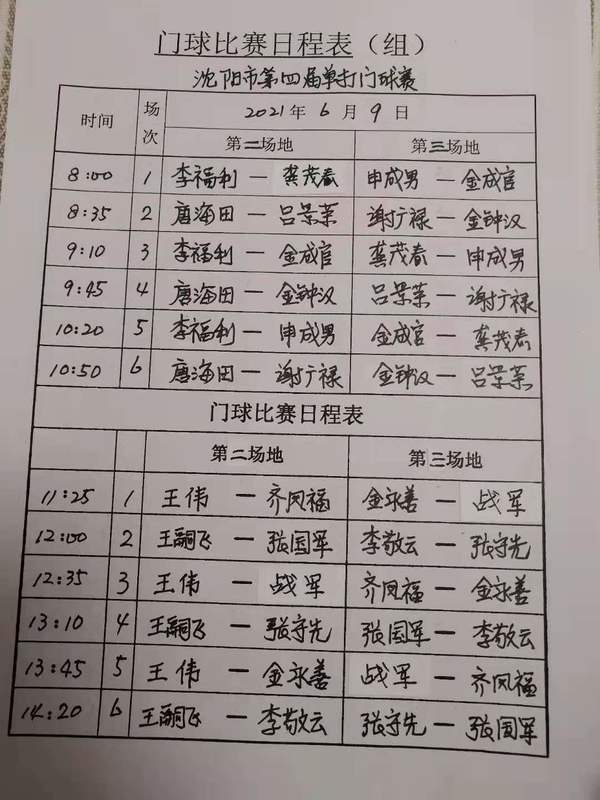 门球比赛日程表（组）
沈阳市第四届单打门球赛
时间 场次 2021年 6 月 9 日
第二场地 第三场地
8:00 1 李福利 — 龚茂春 申成男 — 金成官
8:35 2 唐海田 — 吕景荣 谢广禄 — 金钟汉
9:10 3 李福利 — 金成官 龚茂春 — 申成男
9:45 4 唐海田 — 金钟汉 吕景荣 — 谢广禄
10:20 5 李福利 — 申成男 金成官 — 龚茂春
10:50 6 唐海田 — 谢广禄 金钟汉 — 吕景荣
门球比赛日程表
第二场地 第三场地
11:25 1 王伟 — 齐凤福 金永善 — 战军
12:00 2 王嗣飞 — 张国军 李敬云 — 张守先
12:35 3 王伟 — 战军 齐凤福 — 金永善
13:10 4 王嗣飞 — 张守先 张国军 — 李敬云
13:45 5 王伟 — 金永善 战军 — 齐凤福
14:20 6 王嗣飞 — 李敬云 张守先 — 张国军